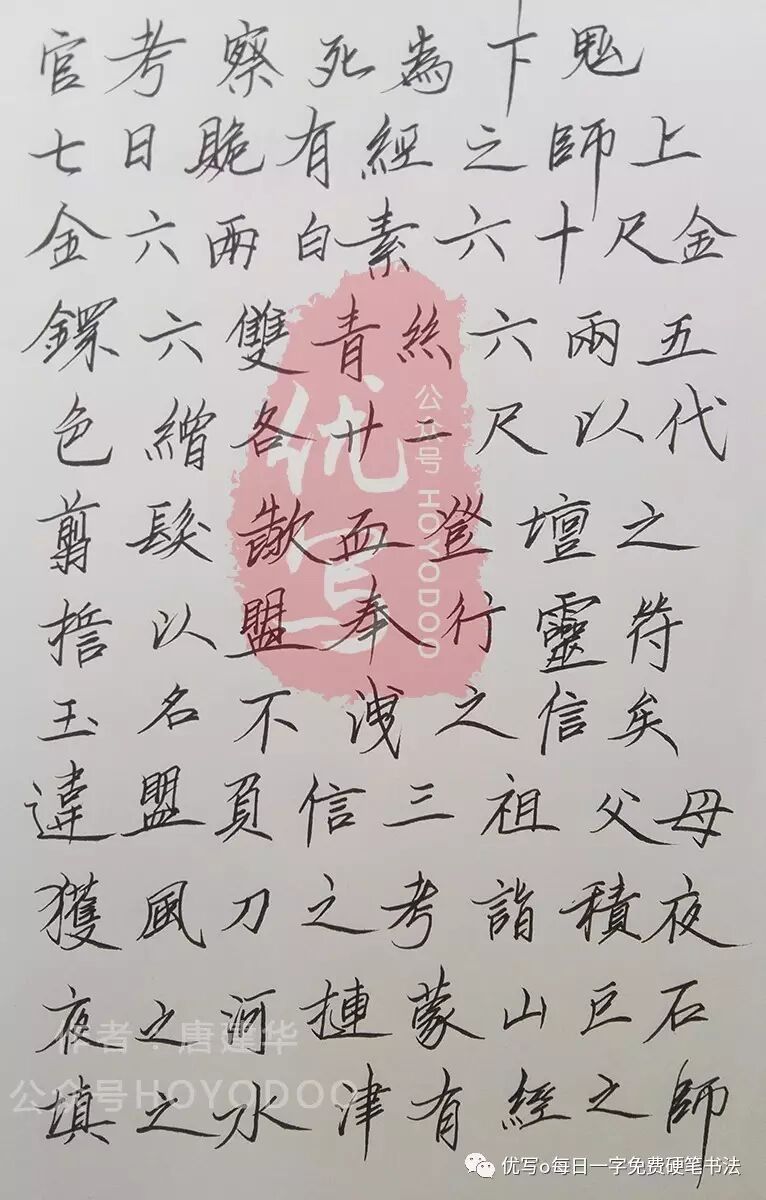 官考察死為下鬼
七日賳有經之師上
金六兩白素六十尺金
鐶六雙青絲六兩五
色繒各廿二尺以代
翦髮歃血登壇之
誓以盟奉行靈符
玉名不洩之信矣
違盟負信三祖父母
獲風刀之考詣積夜
夜之河摙蒙山巨石
填之水津有經之師
优写
公众号 HOYODOO
作者:唐建华
公众号HOYODOO
优写o每日一字免费硬笔书法